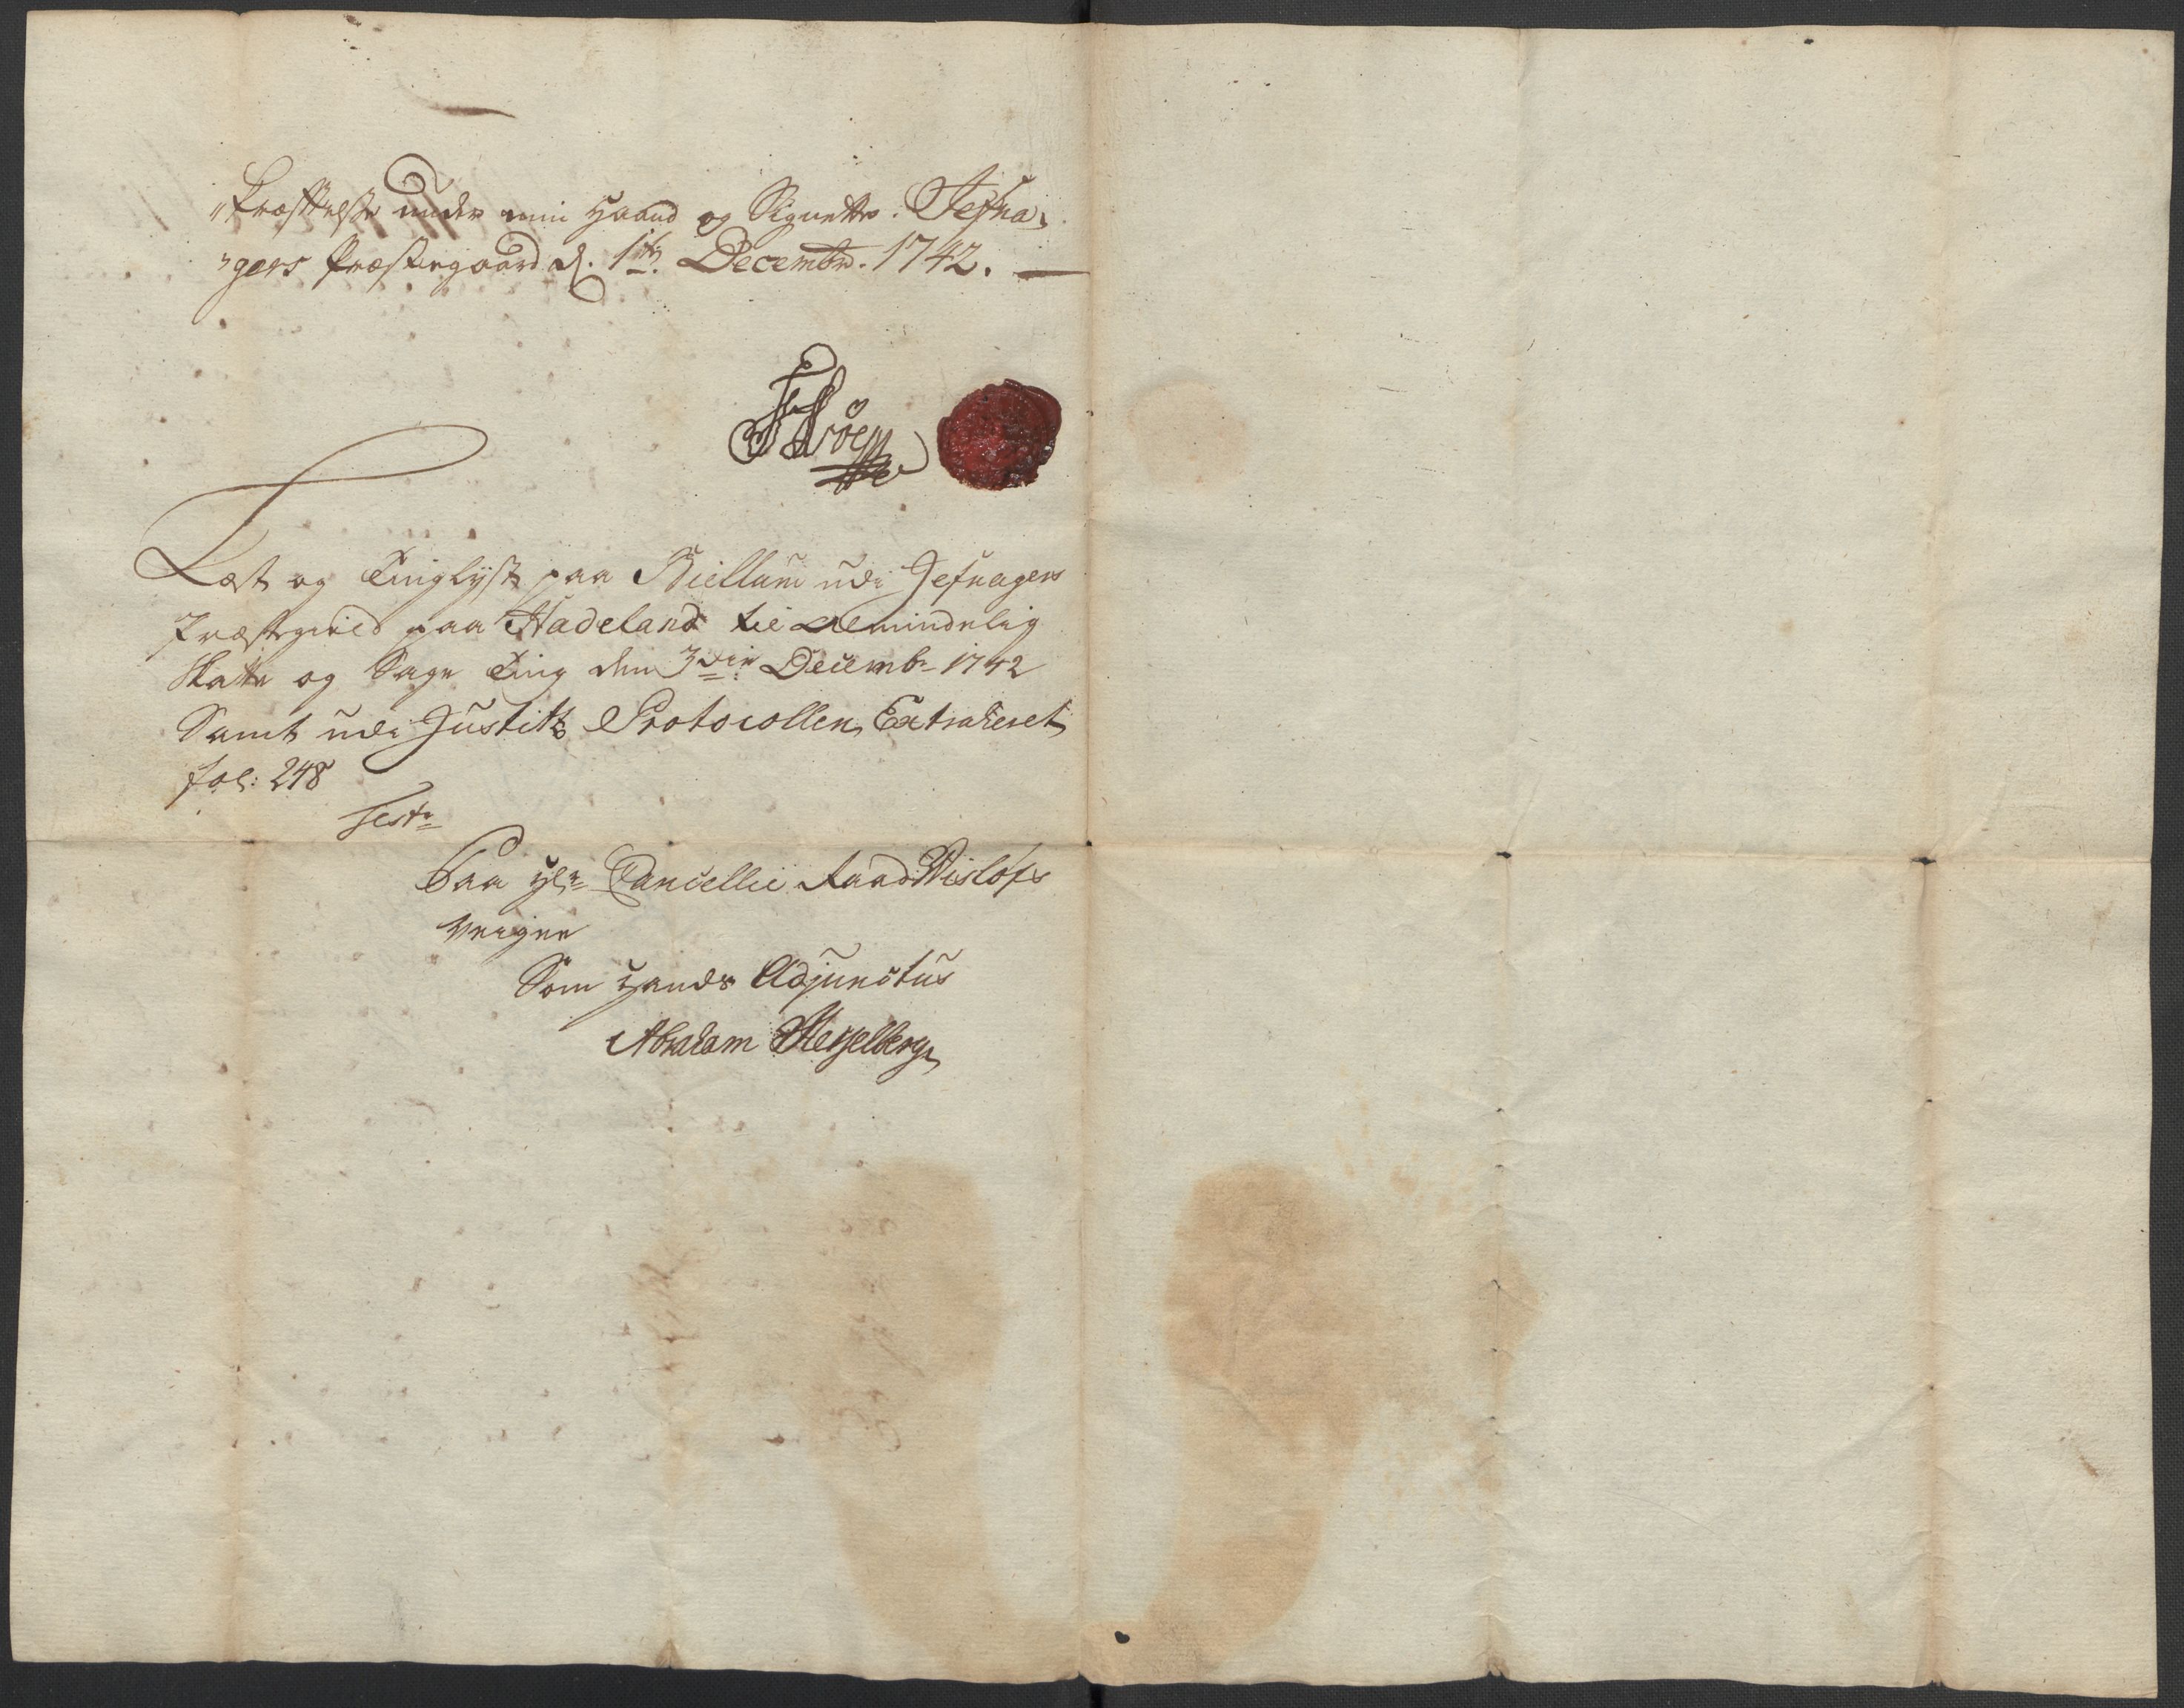 „kræftelse under min Haand og Signette. Jefna„
„gers Præstegaard d. 1ste Decembr. 1742.
Læst og Tinglyst paa Biellum udi Jefnagers
Præstegield paa Hadeland til Almindelig
Skatte og Sage Ting den 3die Decembr 1742
Samt udi Justits Protocollen Extraheret
fol: 248
Test:
Paa Hr Cancellie Raad Wisløfs
Veigne
Som Hands Adjunctus
Abraham Hesselberg